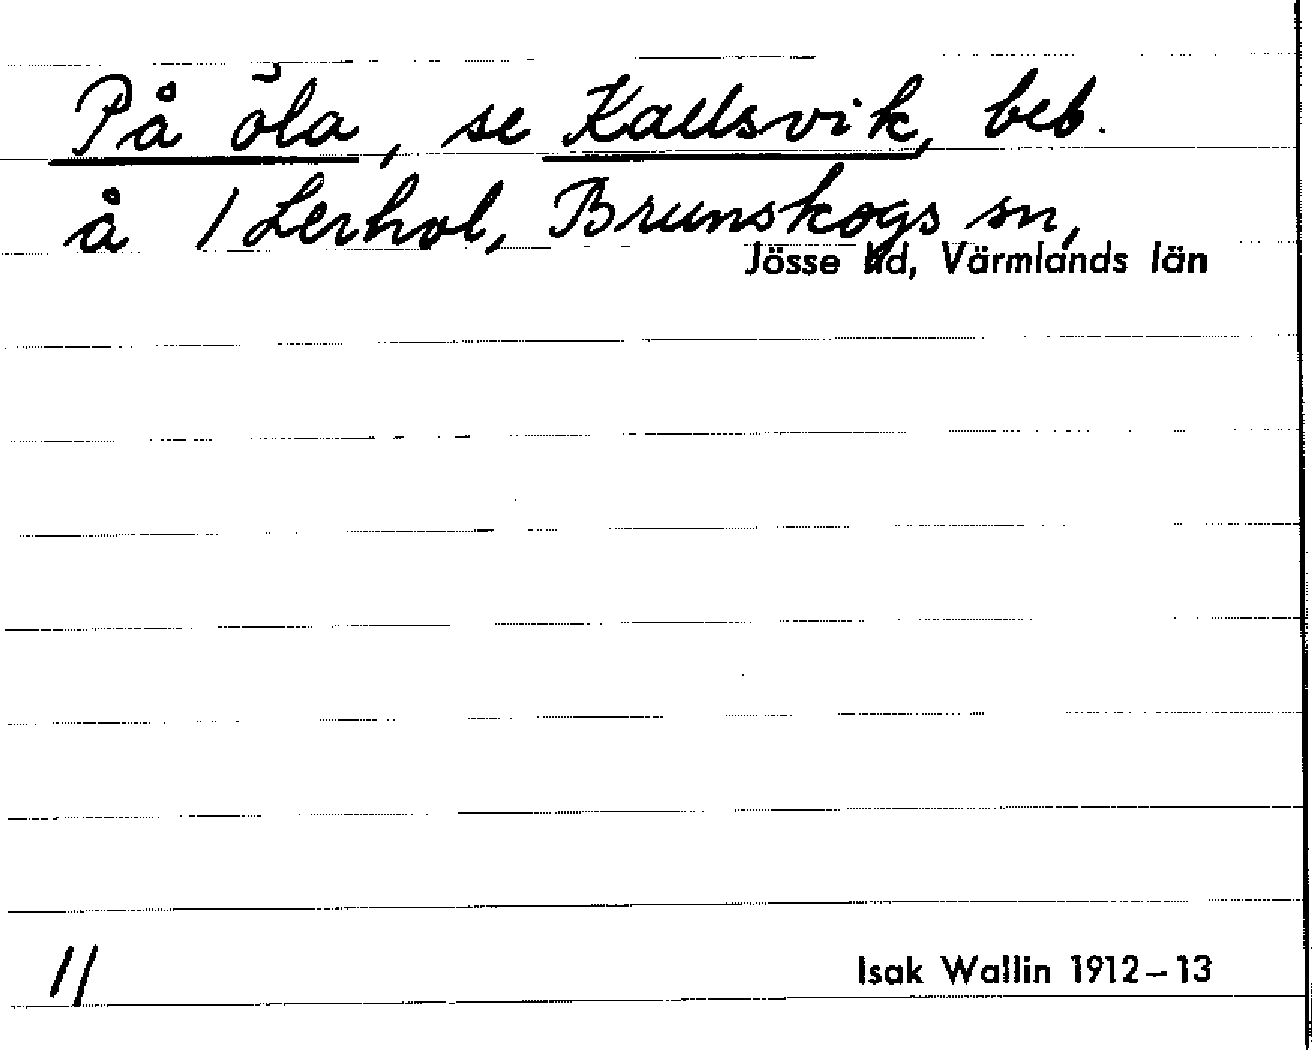 På õla, se Kallsvik, beb.
å 1 Lerhol, Brunskogs sn,
Jösse hd, Värmlands län
11
Isak Wallin 1912–13